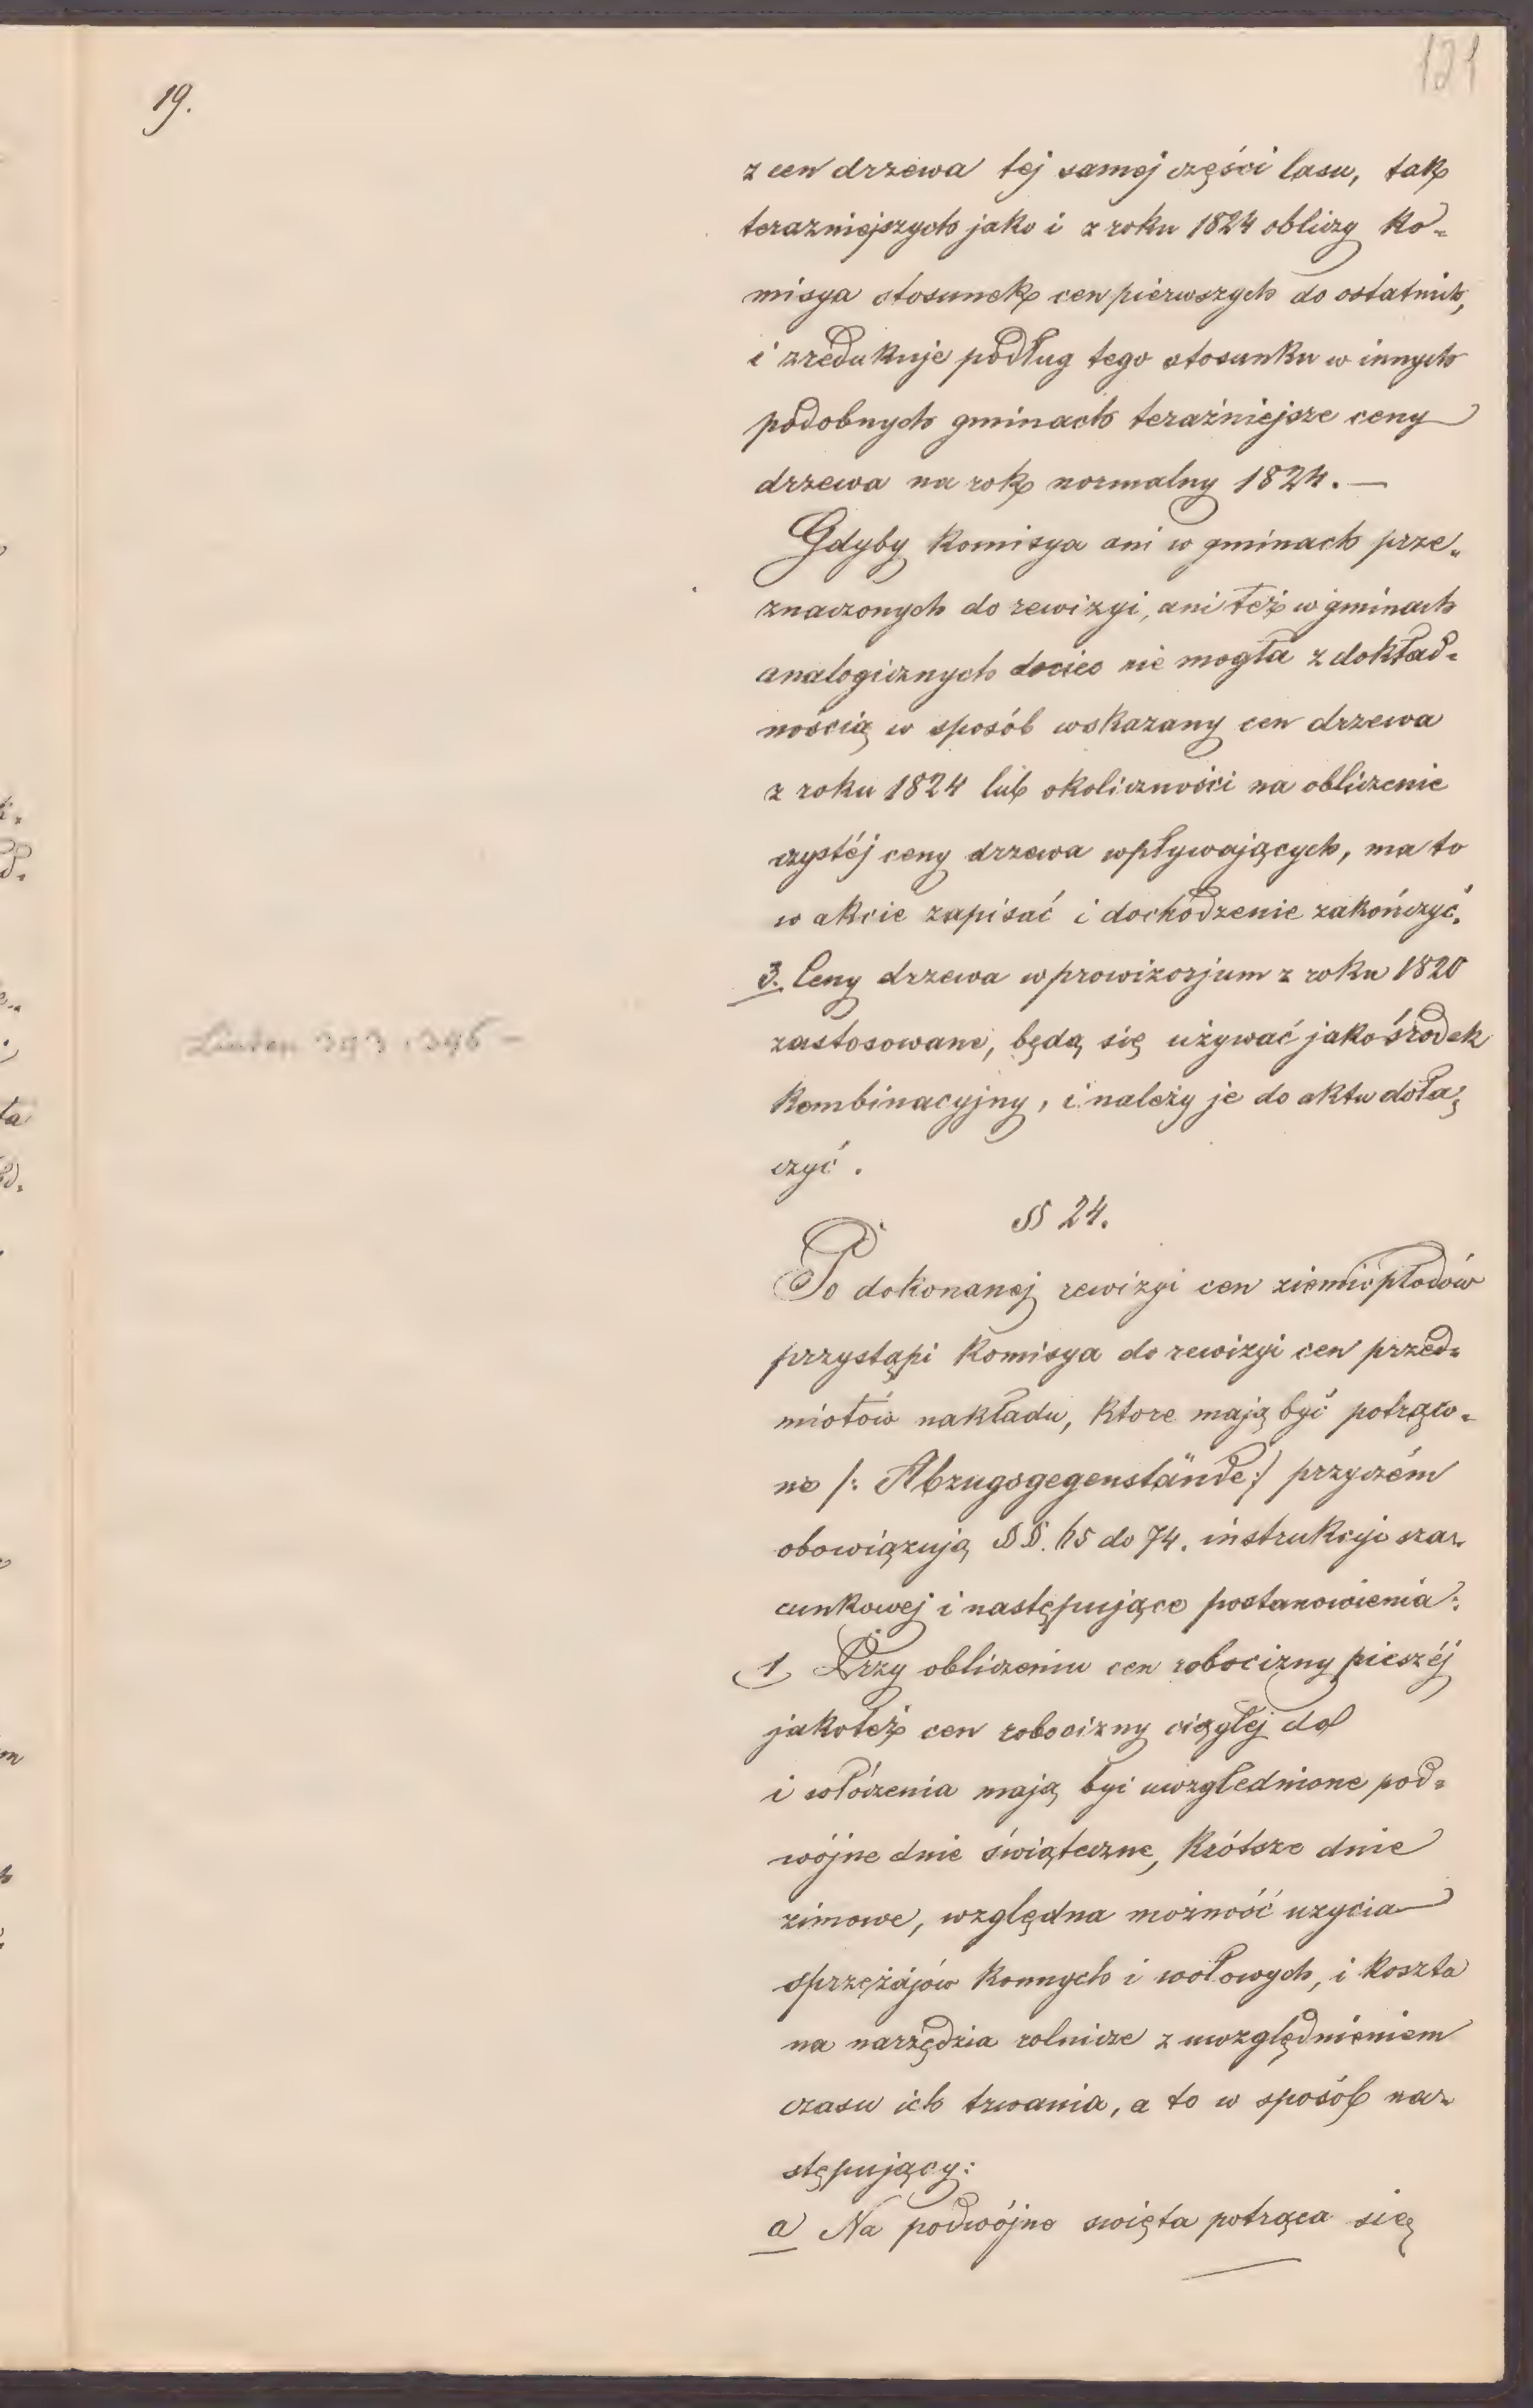 19.
121
z cen drzewa tej samej części lasu, tak
terazniejszych jako i z roku 1824 obliczy Ko=
misya stosunek cen pierwszych do ostatnich,
i zredukuje podług tego stosunku w innych
podobnych gminach teraźniejsze ceny
drzewa na rok normalny 1824. —
Gdyby Komisya ani w gminach prze=
znaczonych do rewizyi, ani też w gminach
analogicznych dociec nie mogła z dokład=
nością w sposób wskazany cen drzewa
z roku 1824 lub okoliczności na obliczenie
czystéj ceny drzewa wpływających, ma to
w akcie zapisać i dochodzenie zakończyć.
3. Ceny drzewa w prowizorjum z roku 1820
zastosowane, będą się używać jako środek
kombinacyjny, i należy je do aktu dołą=
czyć.
§§ 24.
Po dokonanej rewizyi cen ziemiopłodów
przystąpi Komisya do rewizyi cen przed=
miotów nakładu, ktore mają być potrąco=
ne /: Abzugsgegenstände :/ przyczém
obowiązują §§. do 74. instrukcyi sza=
cunkowej i następujące postanowienia:
1 Przy obliczeniu cen robocizny pieszéj
jakoteż cen robocizny ciągłej do
i włóczenia mają być uwzglednione pod=
wójne dnie świąteczne, Krótsze dnie
zimowe, względna możność uzycia
sprzężajów konnych i wołowych, i koszta
na narzędzia rolnicze z uwzględnieniem
czasu ich trwania, a to w sposób na=
stępujący:
a) Na podwójne swięta potrąca się